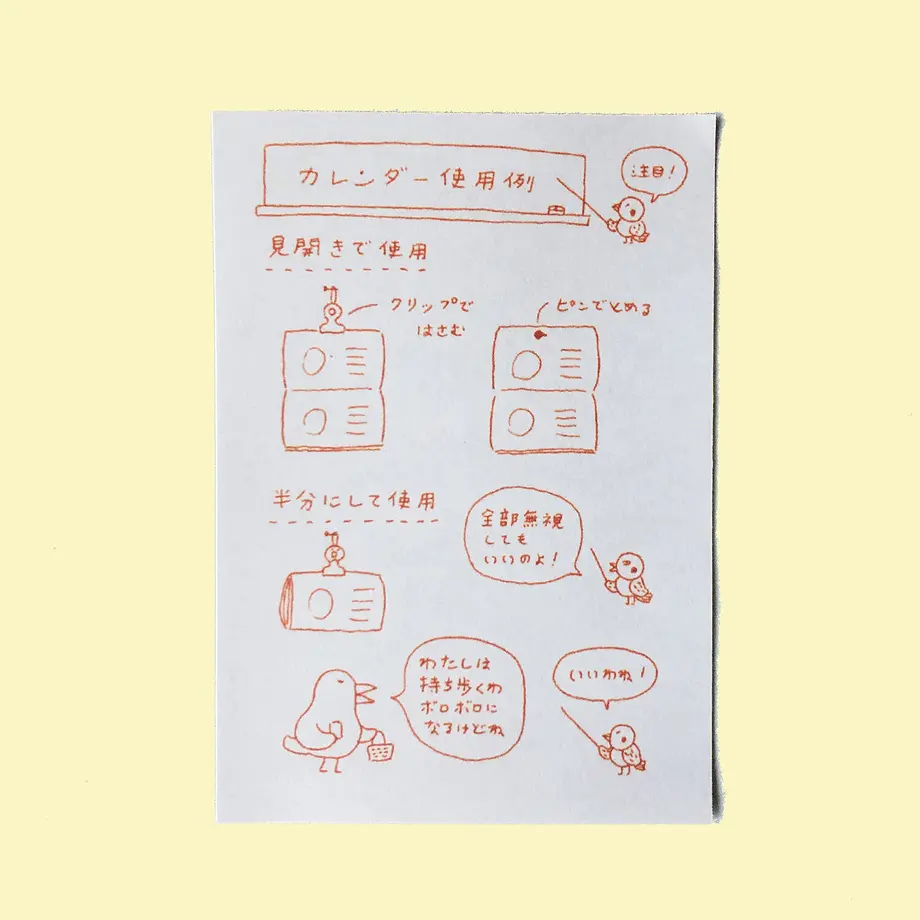 カレンダー使用例
注目!
見開きで使用
クリップで
はさむ
ピンでとめる
半分にして使用
全部無視
しても
いいのよ!
わたしは
持ち歩くわ
ボロボロに
なるけどね
いいわね!